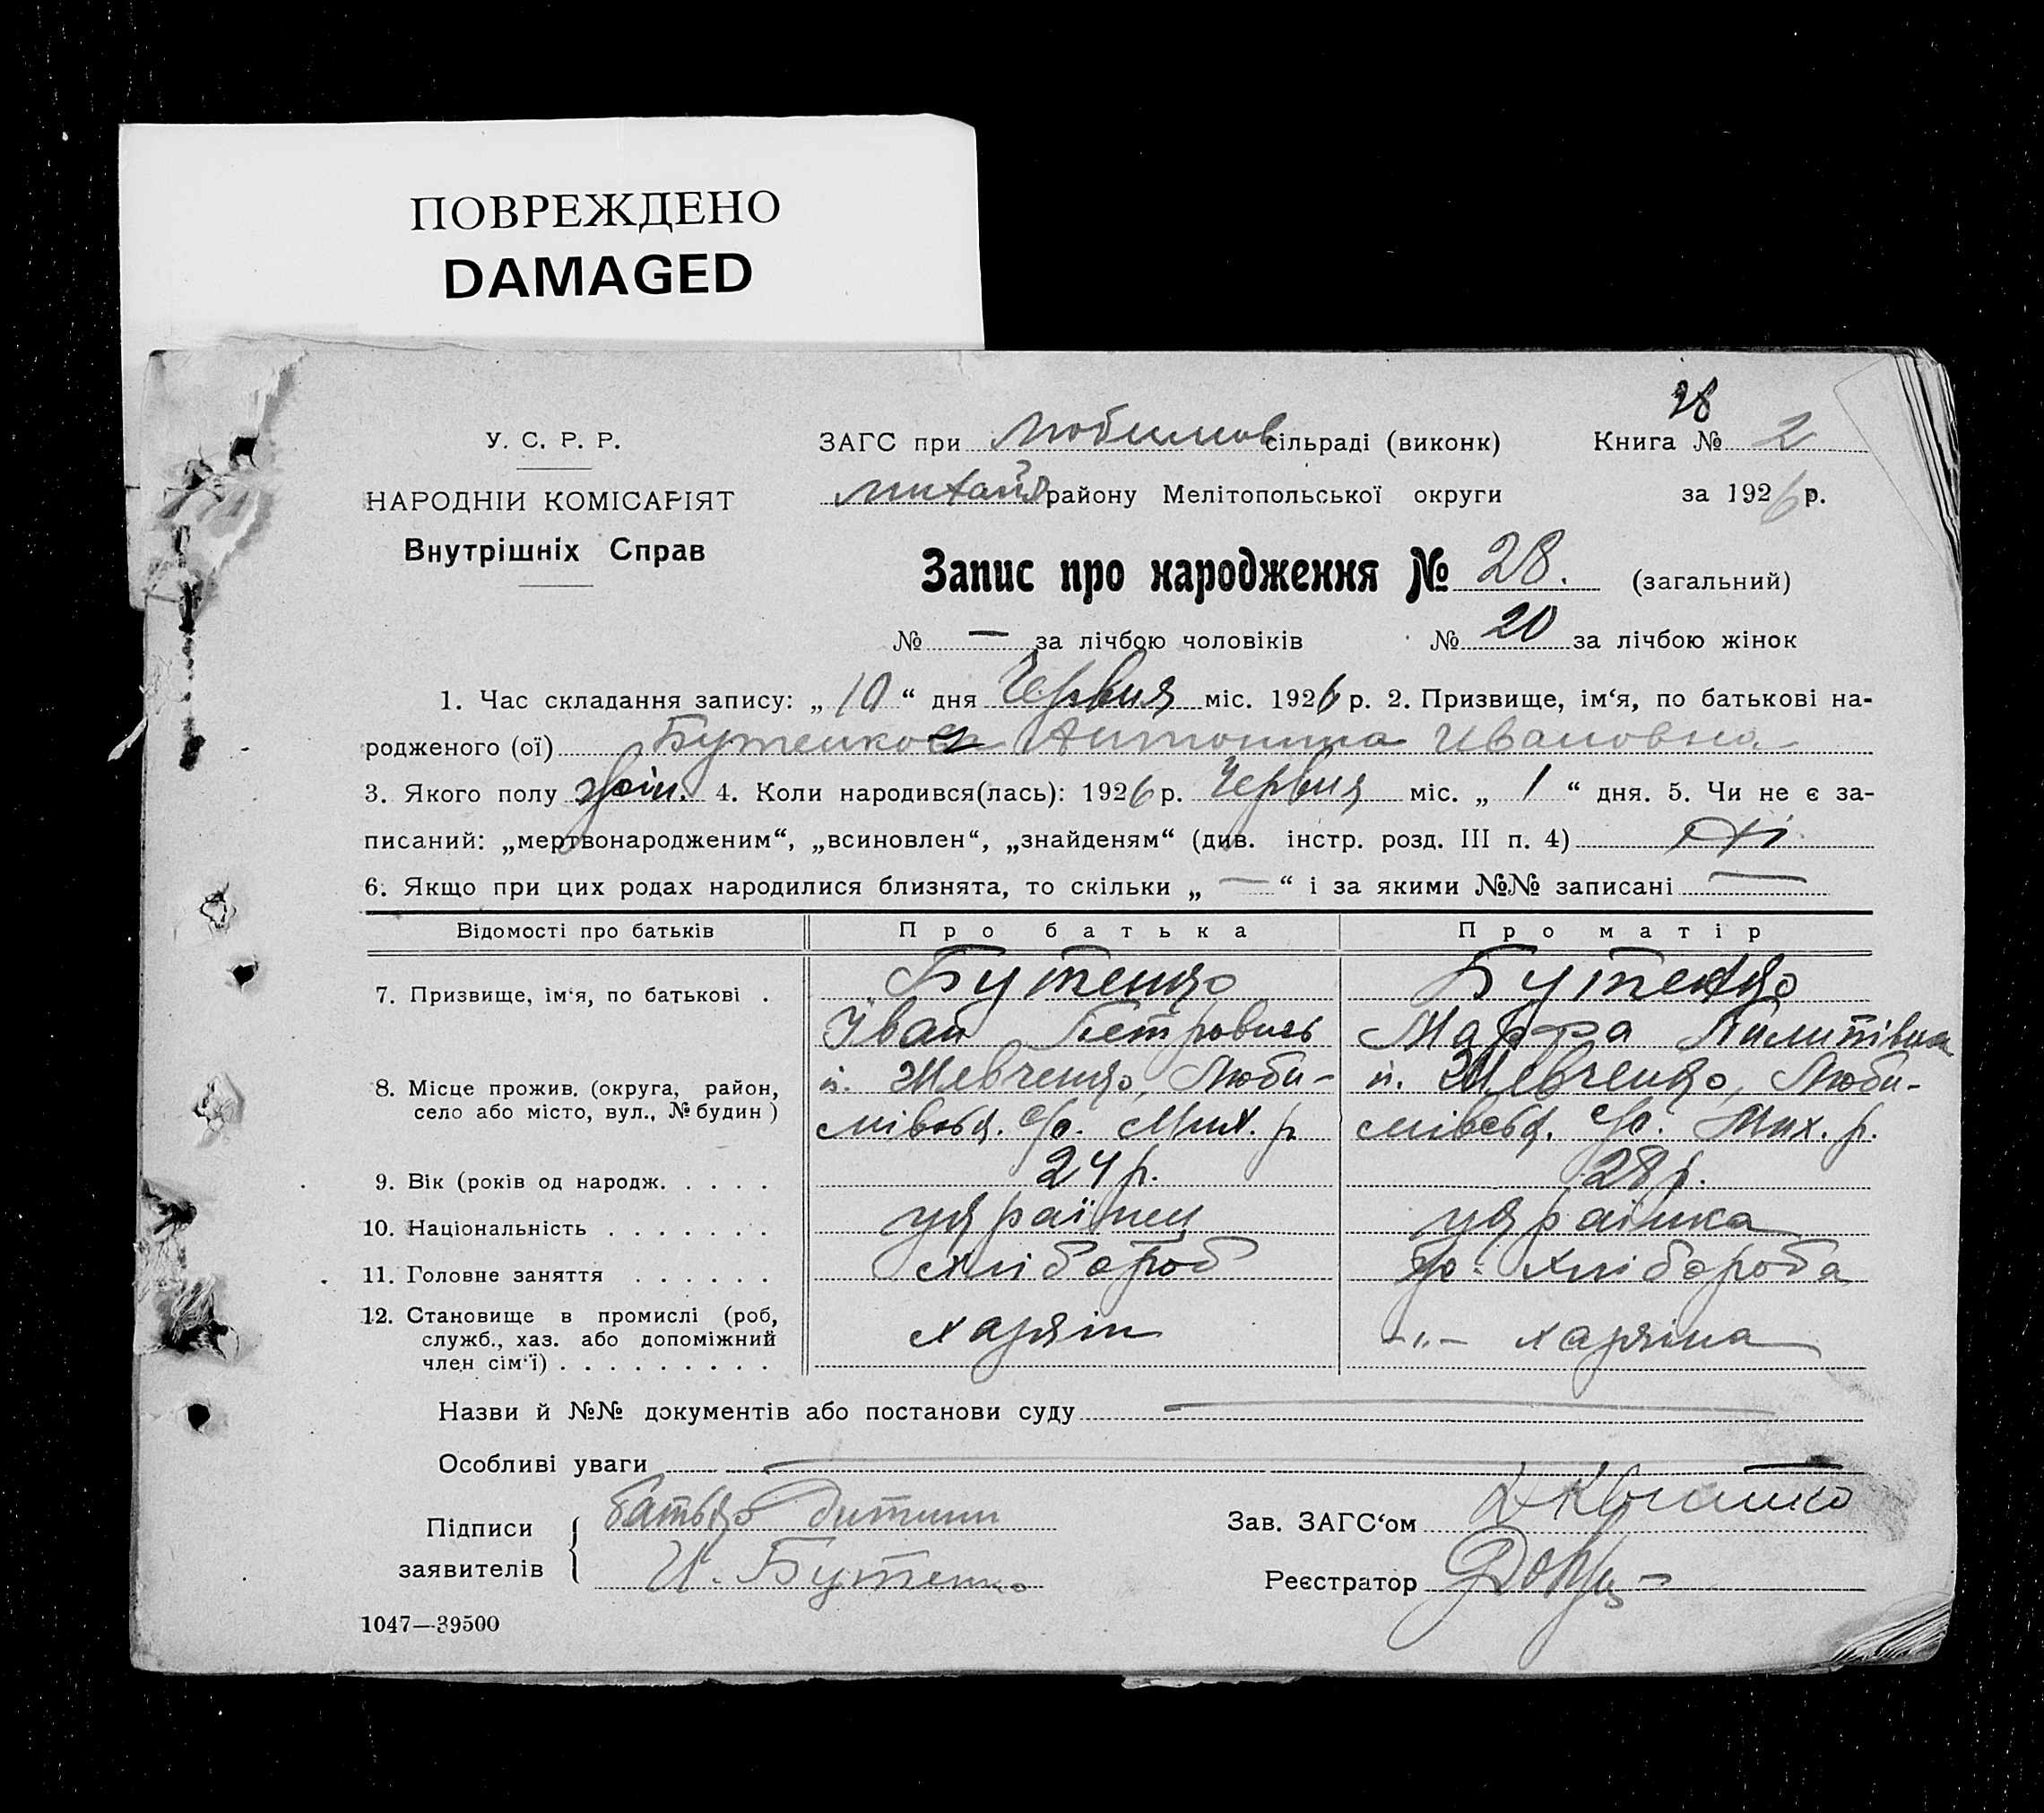 ПОВРЕЖДЕНО
DAMAGED
28
У. С. Р. Р.
ЗАГС при Любимов сільраді (виконк)
Книга № 2
НАРОДНІЙ КОМІСАРІЯТ
Михайл району Мелітопольської округи
за 1926 р.
Внутрішніх Справ
Запис про народження № 28. (загальний)
№ — за лічбою чоловіків № 20 за лічбою жінок
1. Час складання запису: „ 10 “ дня Червня міс. 1926 р. 2. Призвище, ім‘я, по батькові на-
родженого (ої) Бутенко Антонина Ивановна
3. Якого полу жін. 4. Коли народився(лась): 1926 р. Червня міс. „ 1 “ дня. 5. Чи не є за-
писаний: „мертвонародженим“, „всиновлен“, „знайденям“ (див. інстр. розд. III п. 4) Ні
6. Якщо при цих родах народилися близнята, то скільки „ — “ і за якими №№ записані —
Відомості про батьків Про батька Про матір
7. Призвище, ім‘я, по батькові . Бутенко Бутенко
Іван Петрович Марфа Пилипівна
8. Місце прожив. (округа, район, село або місто, вул., № будин ) п. Шевченко, Люби- п. Шевченко, Люби-
мівськ. с/р. Мих. р мівськ. с/р. Мих. р.
9. Вік (років од народж. . . . . 24 р. 28 р.
10. Національність . . . . . . . українец українка
11. Головне заняття . . . . . . хлібороб хлібороба
12. Становище в промислі (роб, служб., хаз. або допоміжний член сім‘ї) . . . . . . . . . хазяїн -„- хазяїна
Назви й №№ документів або постанови суду
Особливі уваги
Підписи заявителів { батько дитини
И. Бутенко
Зав. ЗАГС‘ом
Реєстратор
1047—39500